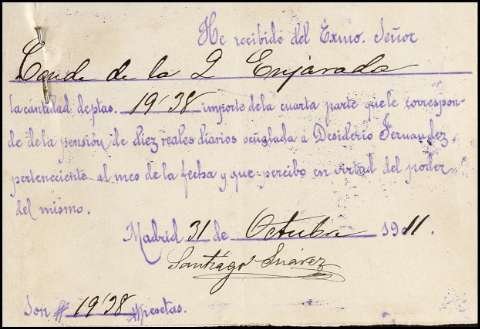 He recibido del Exmo. Señor
Conde de la Q Enjarada
la cantidad de ptas. 19'38 importe de la cuarta parte que le correspon-
de de la pensión de diez reales diarios señalada a Desiderio Fernandez,
perteneciente al mes de la fecha y que percibo en virtud del poder
del mismo.
Madrid 31 de Octubre 1911.
Santiago Suárez
Son # 19'38 # pesetas.